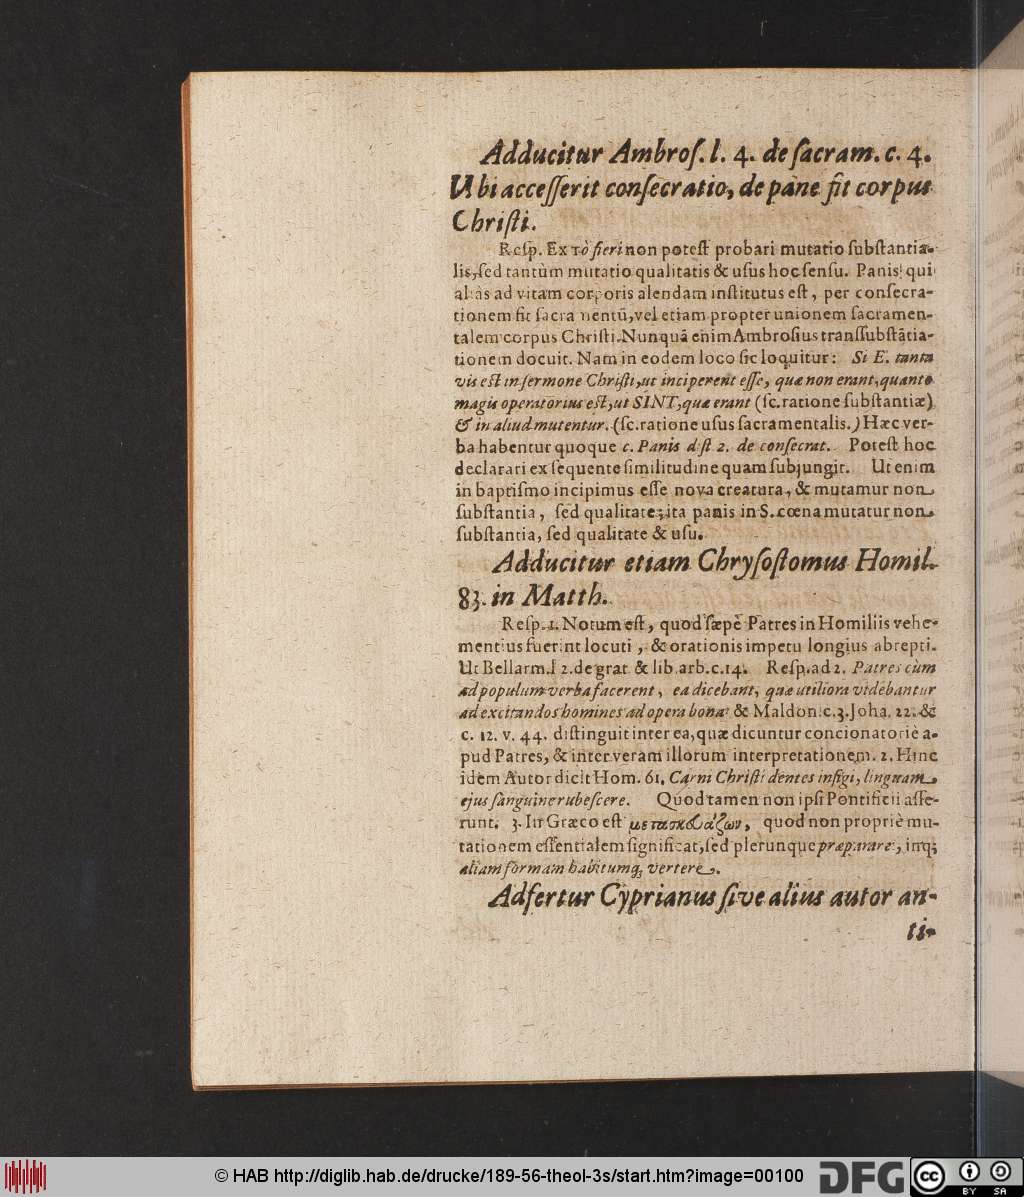 Adducitur Ambroſ. l. 4. de ſacram. c. 4.
Ubi acceſſerit conſecratio, de pane fit corpus
Chriſti.
Reſp. Ex τὸ fieri non poteſt probari mutatio ſubſtantia-
lis, ſed tantùm mutatio qualitatis & uſus hoc ſenſu. Panis, qui
aliàs ad vitam corporis alendam inſtitutus eſt, per conſecra-
tionem fit ſacramentū, vel etiam propter unionem ſacramen-
talem corpus Chriſti. Nunquā enim Ambroſius transſubſtātia-
tionem docuit. Nam in eodem loco ſic loquitur: Si E. tanta
vis eſt in ſermone Chriſti, ut inciperent eſſe, quæ non erant, quanto
magis operatorius eſt, ut SINT, quæ erant (ſc. ratione ſubſtantiæ)
& in aliud mutentur. (ſc. ratione uſus ſacramentalis.) Hæc ver-
ba habentur quoque c. Panis diſt 2. de conſecrat. Poteſt hoc
declarari ex ſequente ſimilitudine quam ſubjungit. Ut enim
in baptiſmo incipimus eſſe nova creatura, & mutamur non
ſubſtantia, ſed qualitate; ita panis in S. cœna mutatur non
ſubſtantia, ſed qualitate & uſu.
Adducitur etiam Chryſoſtomus Homil.
83. in Matth.
Reſp. 1. Notum eſt, quod ſæpè Patres in Homiliis vehe-
mentius fuerint locuti, & orationis impetu longius abrepti.
Ut Bellarm. l 2. de grat & lib. arb. c. 14. Reſp. ad 2. Patres cùm
ad populum verba facerent, ea dicebant, quæ utiliora videbantur
ad excitandos homines ad opera bona: & Maldon. c. 3. Joha. 22. &
c. 12. v. 44. diſtinguit inter ea, quæ dicuntur concionatoriè a-
pud Patres, & inter veram illorum interpretationem. 2. Hinc
idem Autor dicit Hom. 61. Carni Chriſti dentes infigi, linguam
ejus ſanguine rubeſcere. Quod tamen non ipſi Pontificii aſſe-
runt. 3. In Græco eſt μετασκευάζων, quod non propriè mu-
tationem eſſentialem ſignificat, ſed plerunque præparare, inq;
aliam formam habitumq; vertere.
Adfertur Cyprianus ſive alius autor an-
ti-
© HAB http://diglib.hab.de/drucke/189-56-theol-3s/start.htm?image=00100
DFG
cc
BY SA